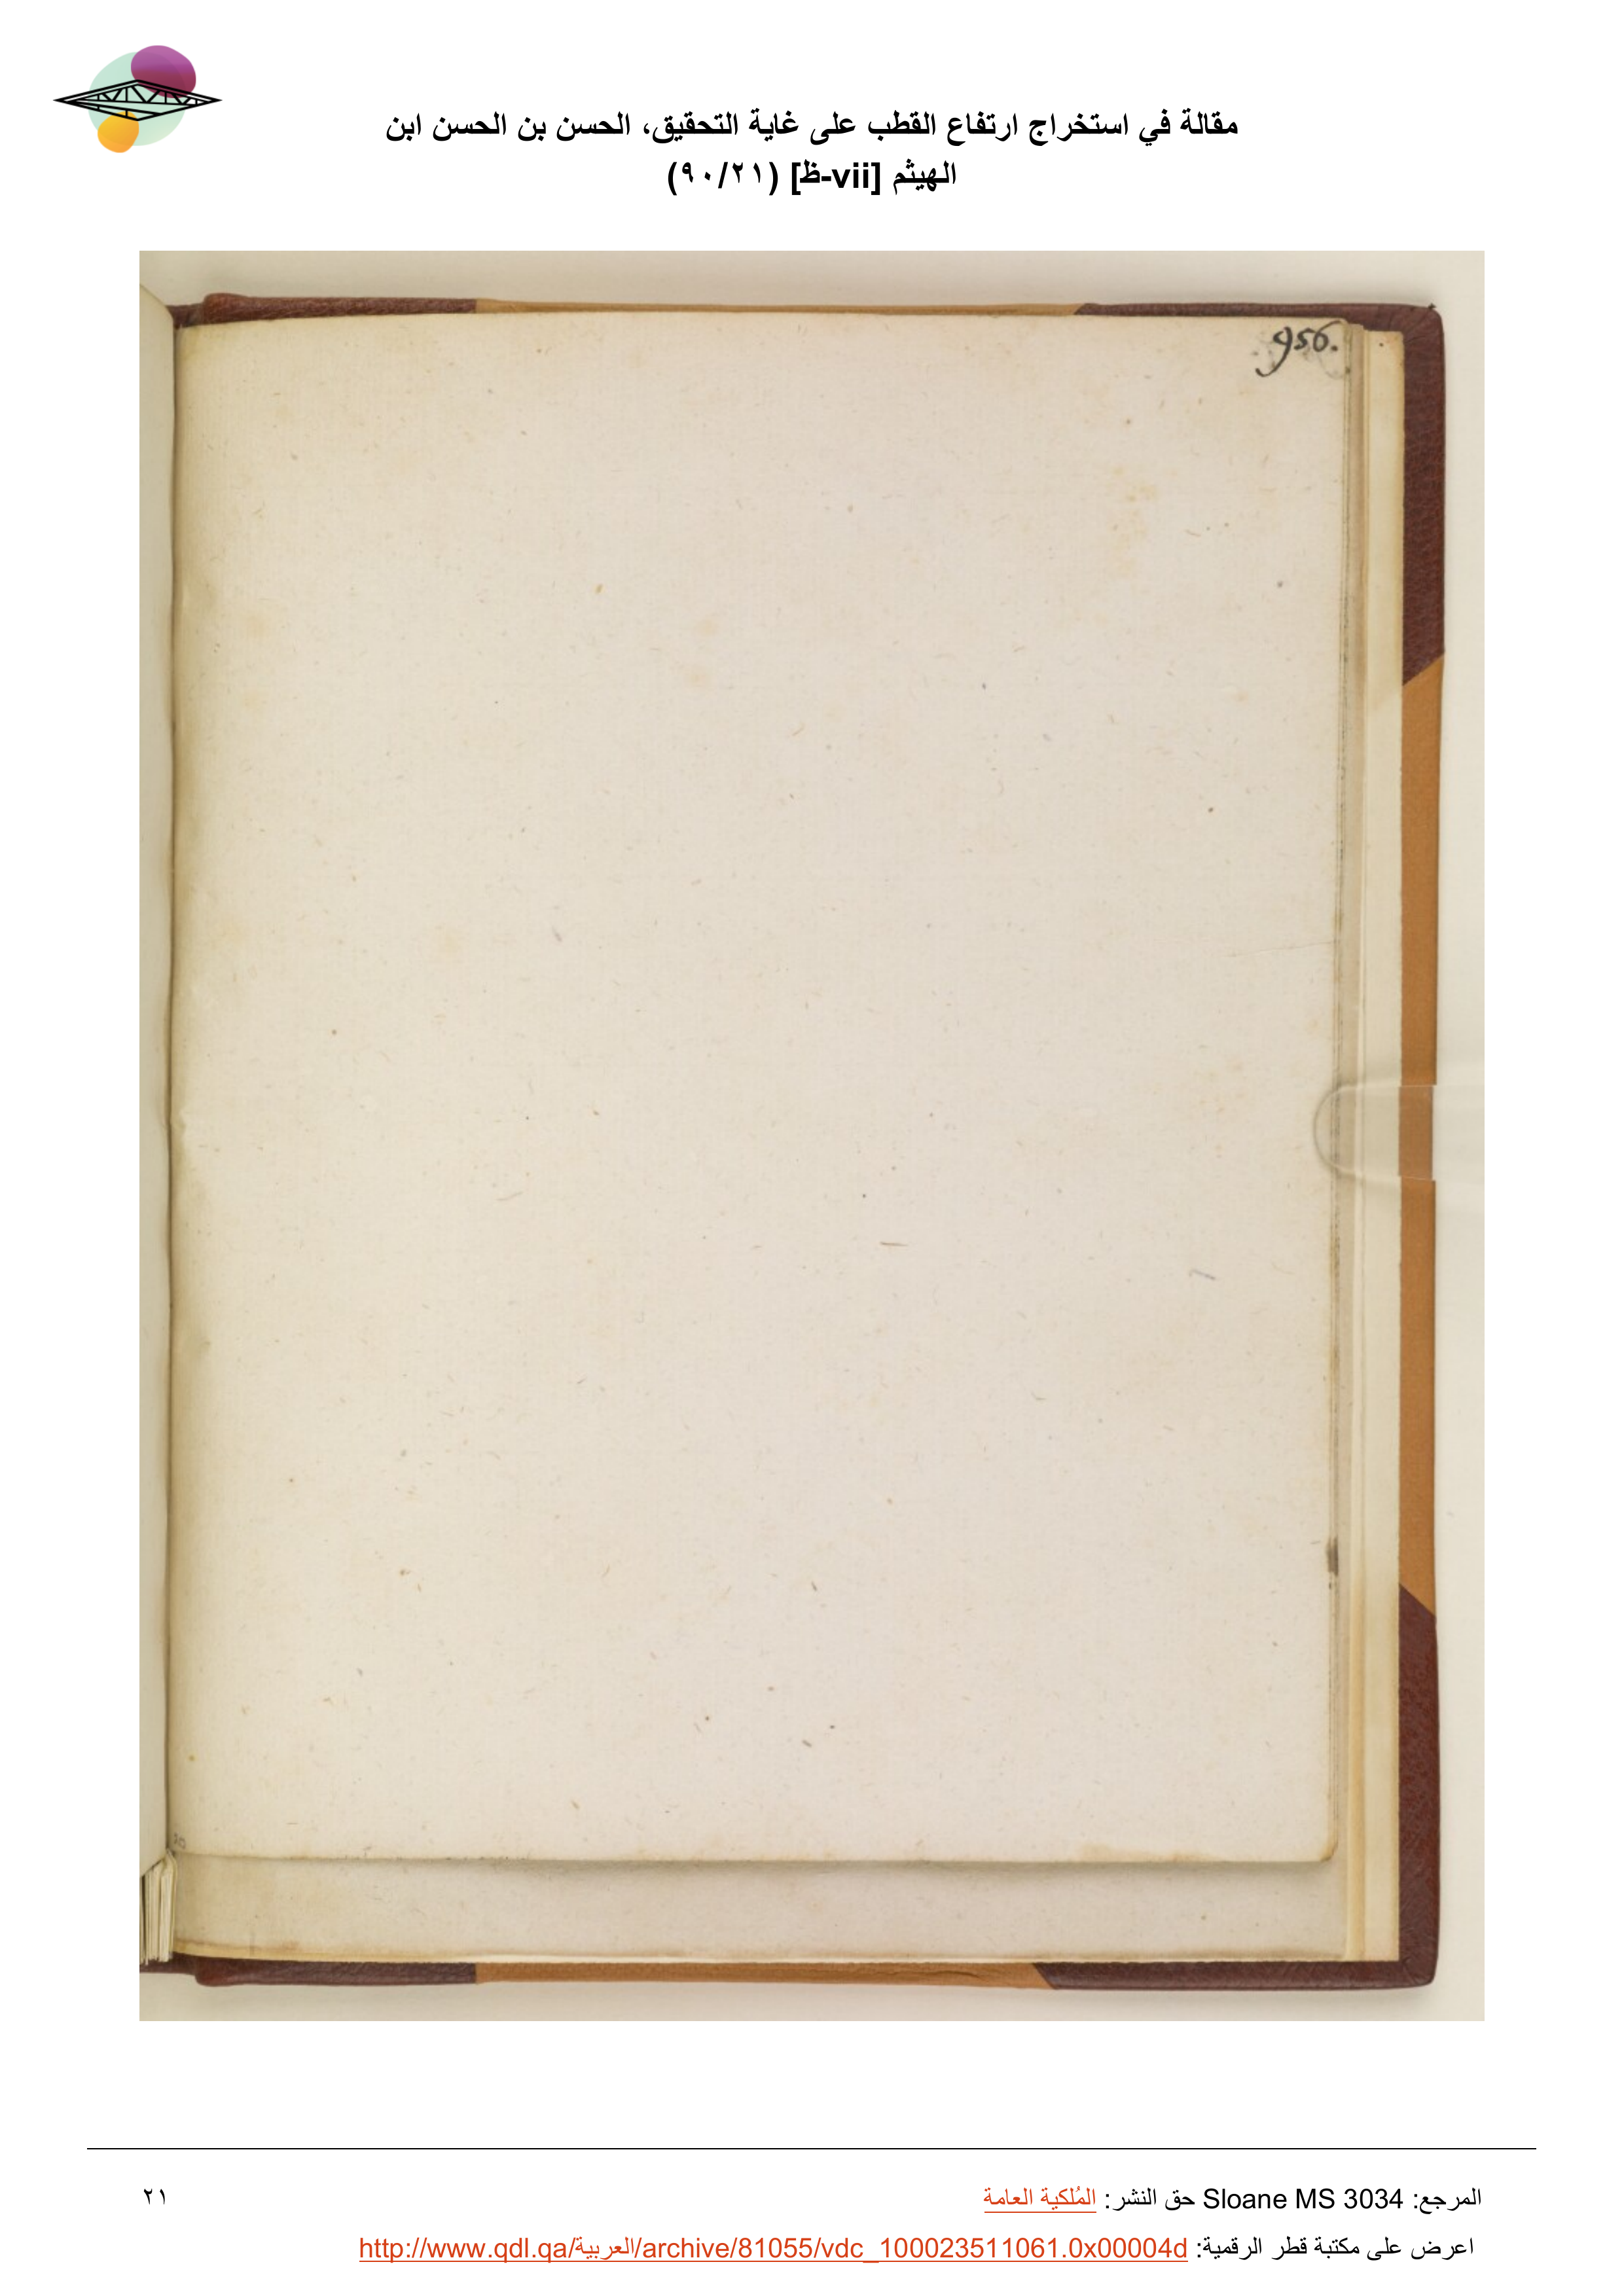 مقالة في استخراج ارتفاع القطب على غاية التحقيق، الحسن بن الحسن ابن
الهيثم [vii-ظ] (٩٠/٢١)
956.
المرجع: Sloane MS 3034 حق النشر: المُلكية العامة
٢١
اعرض على مكتبة قطر الرقمية: http://www.qdl.qa/العربية/archive/81055/vdc_100023511061.0x00004d